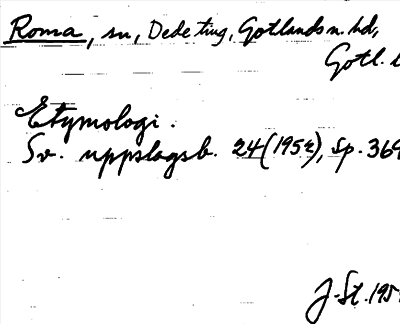 Roma, sn, Dede ting, Gotlands n. hd,
Gotl. l
Etymologi.
Sv. uppslagsb. 24 (1952), sp. 369
J. St. 195